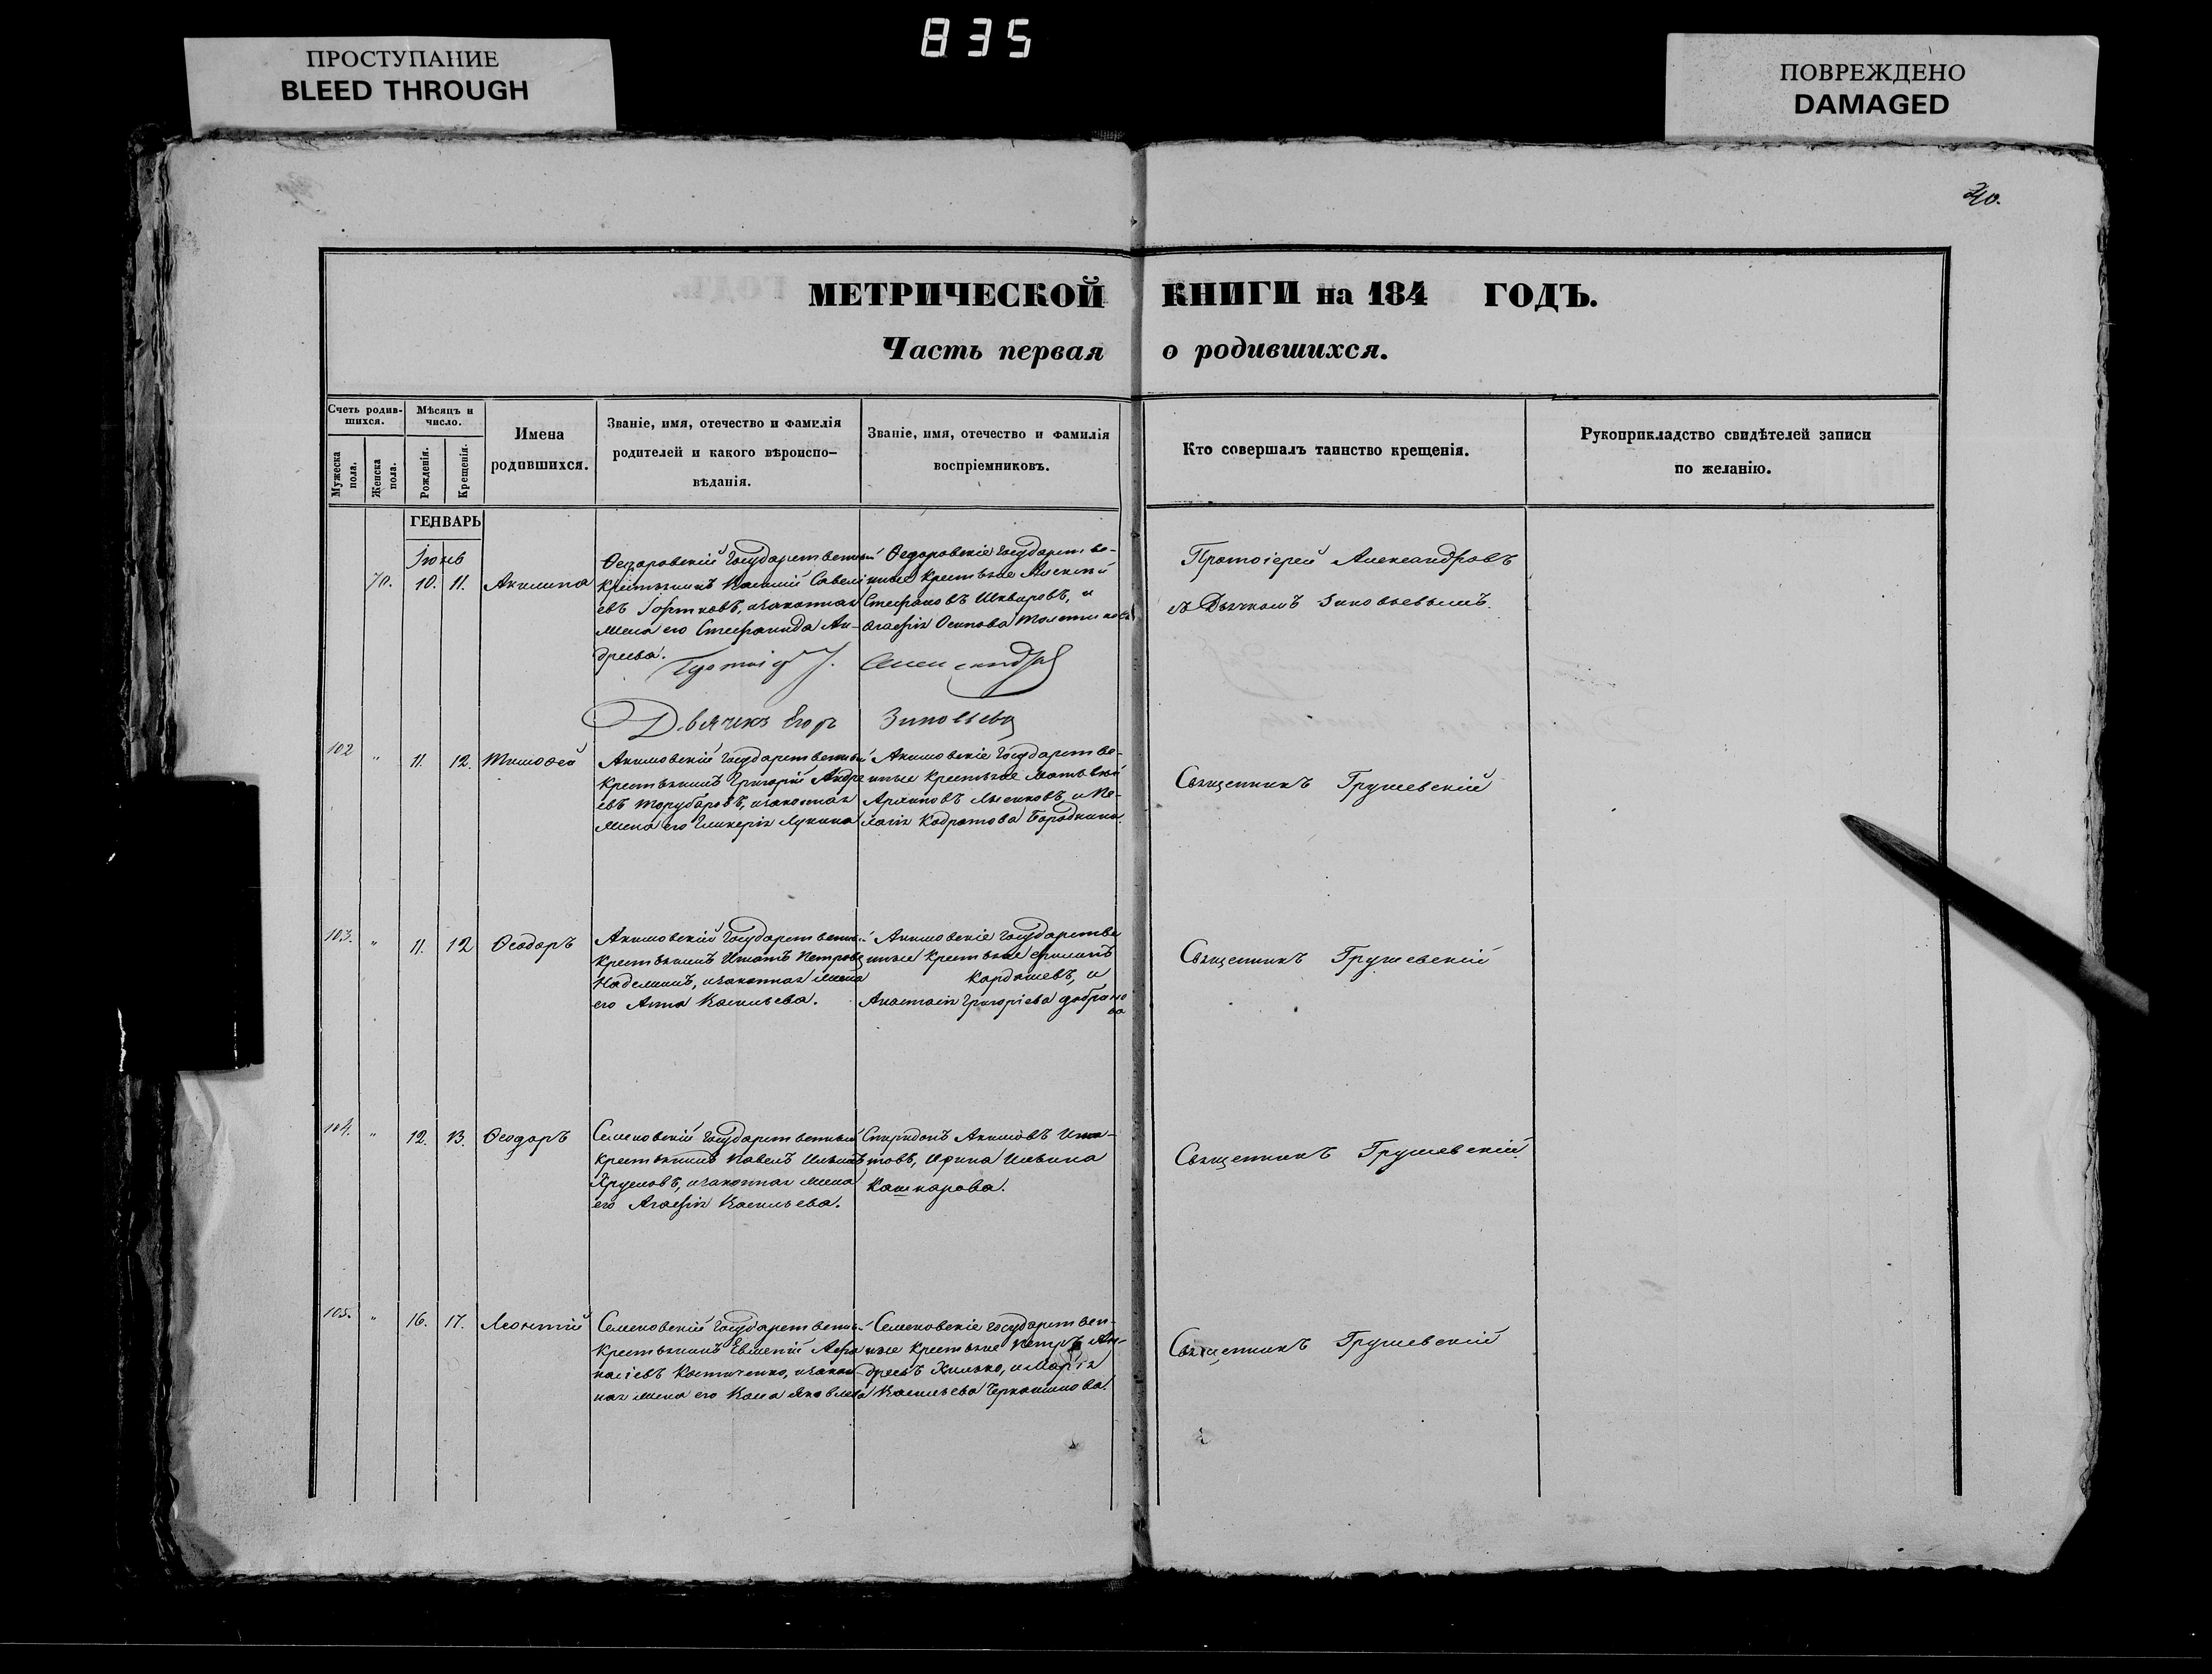 835
ПРОСТУПАНИЕ
BLEED THROUGH
ПОВРЕЖДЕНО
DAMAGED
40.
МЕТРИЧЕСКОЙ КНИГИ на 184 ГОДЪ.
Часть первая о родившихся.
Счетъ родив-
шихся.
Мужеска пола.
Женска пола.
Мѣсяцъ и
число.
Рожденія.
Крещенія.
Имена
родившихся.
Званіе, имя, отечество и фамилія
родителей и какого вѣроиспо-
вѣданія.
Званіе, имя, отечество и фамилія
воспріемниковъ.
Кто совершалъ таинство крещенія.
Рукоприкладство свидѣтелей записи
по желанію.
ГЕНВАРЬ
Іюнь
70.
10.
11.
Акилина
Ѳедоровскій Государственный
крестьянинъ Василій Савелі
евъ, изаконная
жена его Стефанида Ан-
дреева.
Ѳедоровскіе Государстве-
нные крестьяне Алексій
Стефановъ Шкваровъ, и
Агафія Осипова
Протоіерей Александровъ
съ Дьячкомъ Зиновьевымъ.
Протоіер. Александров
Дьячекъ Егоръ Зиновьевъ
102
"
11.
12.
Тимоѳей
Акимовскій Государственный
крестьянинъ Григорій Андре
евъ Торубаровъ, изаконная
жена его Гликерія Лукина
Акимовскіе Государстве-
нные крестьяне Матвѣй
Архиповъ и Пе-
лагія Кодратова Бородкина.
Священникъ Грушевскій
103.
"
11.
12
Ѳеодоръ
Акимовскій Государственный
крестьянинъ Игнатъ Петровъ
изаконная жена
его Анна Васильева.
Акимовскіе Государстве
нные крестьяне Филипъ
Кардашевъ, и
Анастасія Григоріева
Священникъ Грушевскій
104.
"
12.
13.
Ѳеодоръ
Семеновскій Государственный
крестьянинъ Павелъ Ильинъ
изаконная жена
его Агафія Васильева.
Спиридонъ Акимовъ Игна-
товъ, Ирина Ильина
Кашкарова.
Священникъ Грушевскій.
105.
"
16.
17.
Леонтій
Семеновскій Государственный
крестьянинъ Евменій Афа
насіевъ Костюченко, изакон
ная жена его Васа Яковлева
Семеновскіе государствен-
ные крестьяне Петръ Ан-
дреевъ Хилько, и Марія
Васильева Черкашинова.
Священникъ Грушевскій